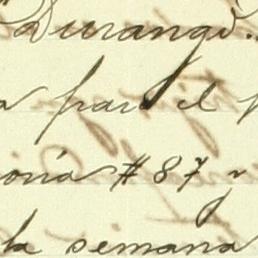 Durango.
para el
#87 y
la semana